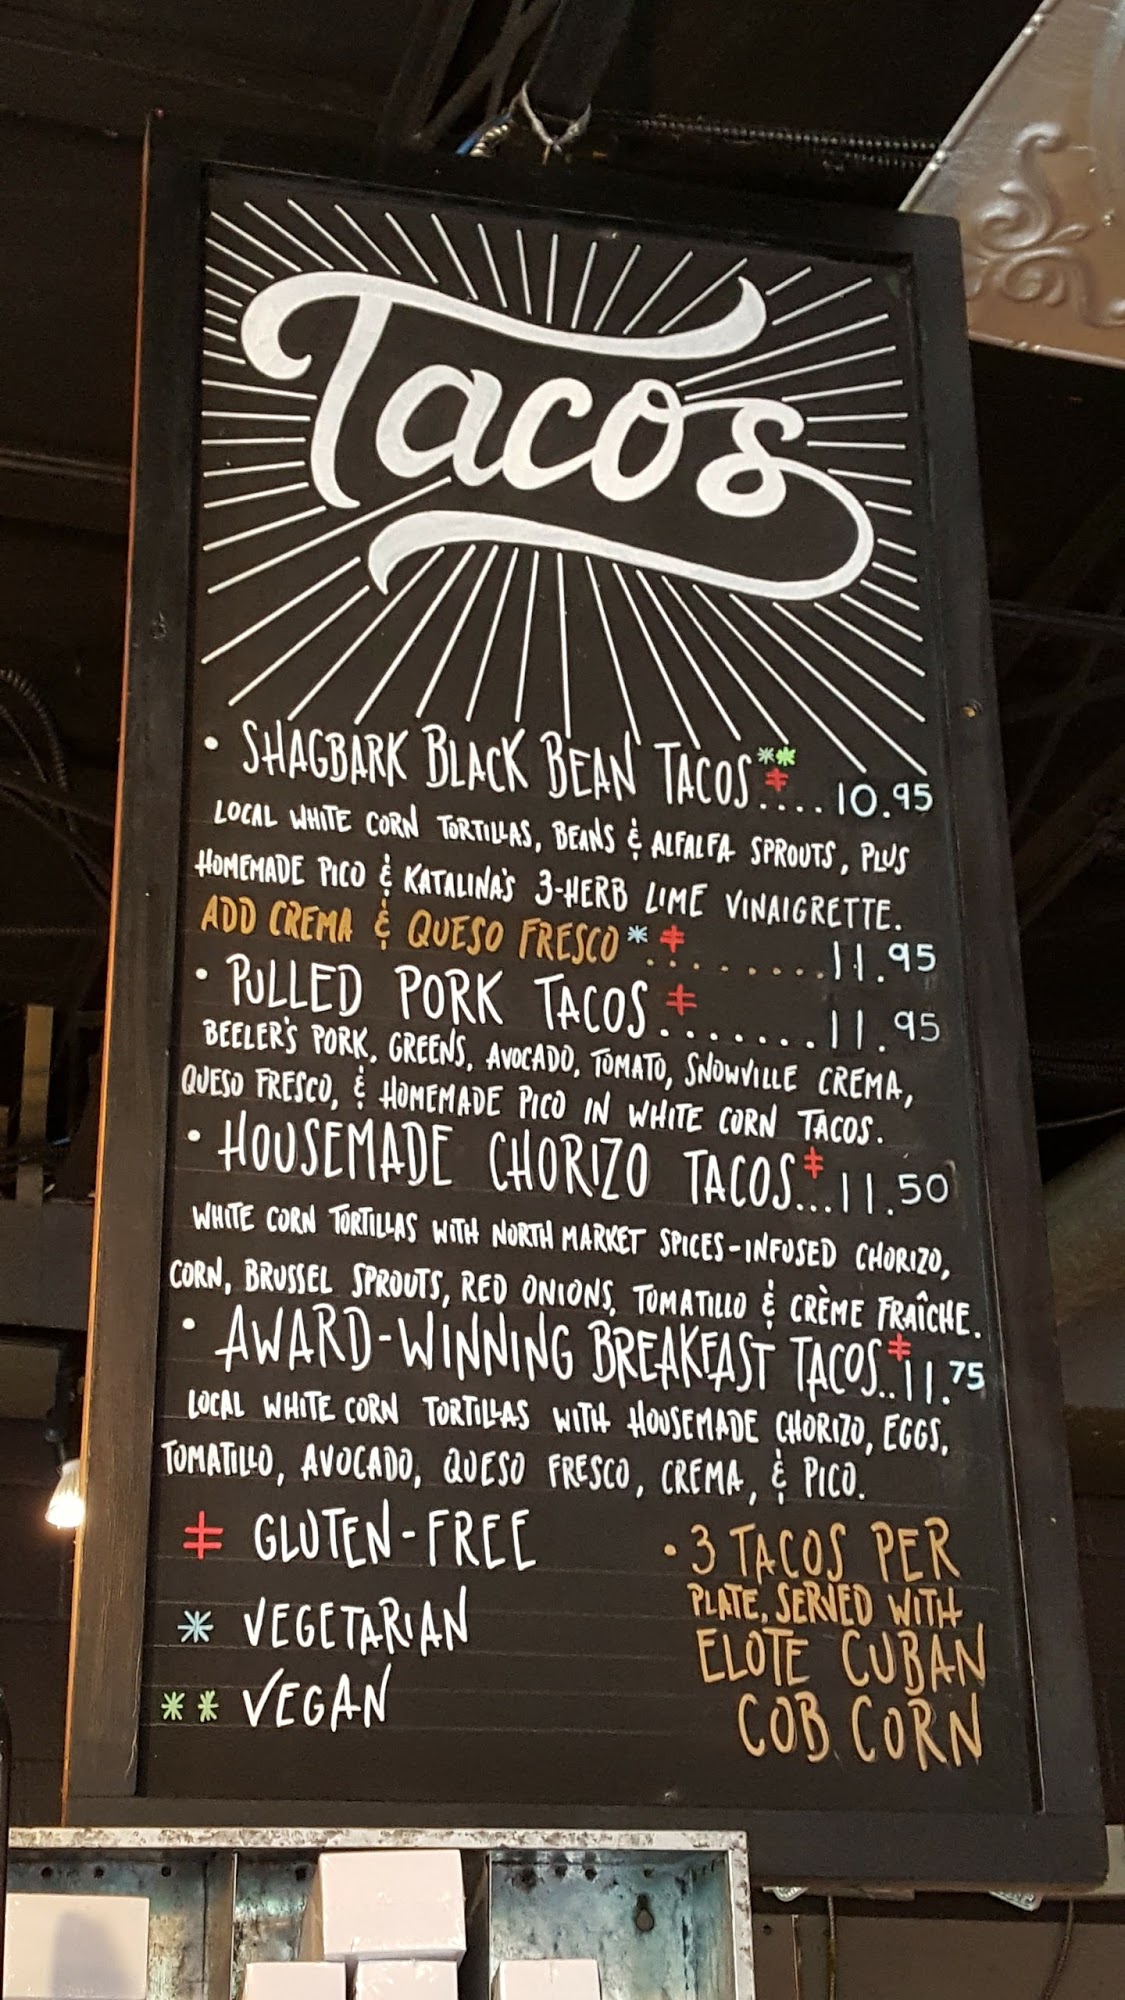 Tacos
• SHAGBARK BLACK BEAN TACOS ** ‡ .... 10.95
LOCAL WHITE CORN TORTILLAS, BEANS & ALFALFA SPROUTS, PLUS
HOMEMADE PICO & KATALINA'S 3-HERB LIME VINAIGRETTE.
ADD CREMA & QUESO FRESCO * ‡ ......... 11.95
• PULLED PORK TACOS ‡ ....... 11.95
BEELER'S PORK, GREENS, AVOCADO, TOMATO, SNOWVILLE CREMA,
QUESO FRESCO, & HOMEMADE PICO IN WHITE CORN TACOS.
• HOUSEMADE CHORIZO TACOS ‡ ... 11.50
WHITE CORN TORTILLAS WITH NORTH MARKET SPICES-INFUSED CHORIZO,
CORN, BRUSSEL SPROUTS, RED ONIONS, TOMATILLO & CRÈME FRAÎCHE.
• AWARD-WINNING BREAKFAST TACOS ‡ .. 11.75
LOCAL WHITE CORN TORTILLAS WITH HOUSEMADE CHORIZO, EGGS,
TOMATILLO, AVOCADO, QUESO FRESCO, CREMA, & PICO.
‡ GLUTEN-FREE
* VEGETARIAN
** VEGAN
• 3 TACOS PER
PLATE, SERVED WITH
ELOTE CUBAN
COB CORN